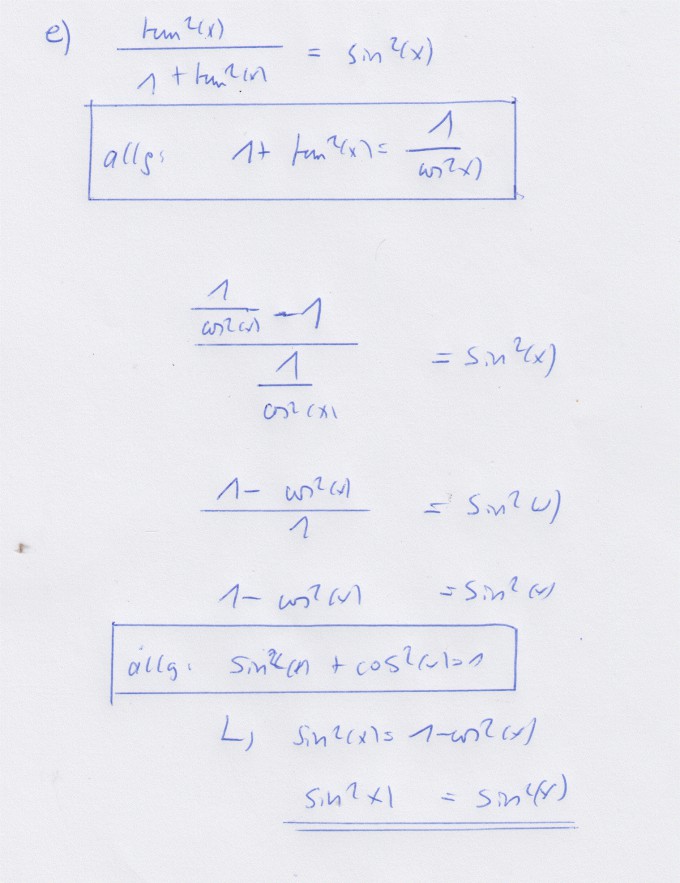 e) tan²(x) / (1 + tan²(x)) = sin²(x)
allg: 1 + tan²(x) = 1 / cos²(x)
(1 / cos²(x) - 1) / (1 / cos²(x)) = sin²(x)
(1 - cos²(x)) / 1 = sin²(x)
1 - cos²(x) = sin²(x)
allg: sin²(x) + cos²(x) = 1
↳ sin²(x) = 1 - cos²(x)
sin²x) = sin²(x)